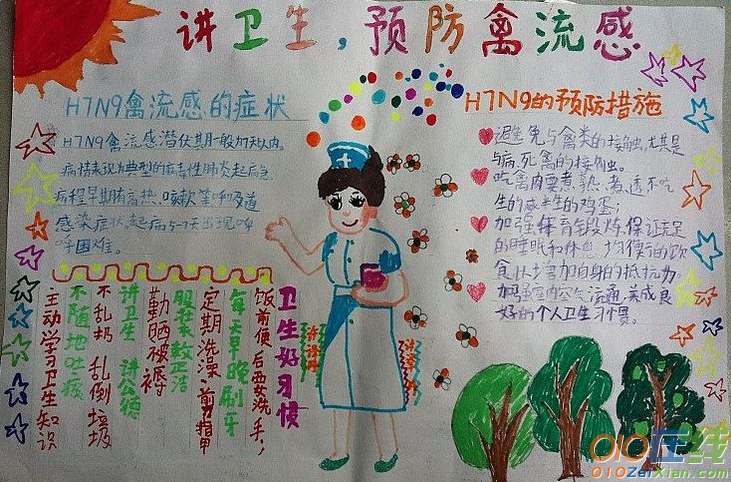 讲卫生,预防禽流感
H7N9禽流感的症状
H7N9禽流感潜伏期一般7天以内。
病情表现为典型的病毒性肺炎起病急
病程早期有高热、咳嗽等呼吸道
感染症状。起病5-7天出现呼
呼困难。
H7N9的预防措施
避免与禽类的接触,尤其是
与病死禽的接触。
吃禽肉要煮熟、煮透不吃
生的或半生的鸡蛋;
加强体育锻炼,保证充足
的睡眠和休息,均衡的饮
食,以增加自身的抵抗力
加强室内空气流通,养成良
好的个人卫生习惯。
卫生好习惯
饭前便后要洗手,
每天早晚刷牙
定期洗澡、剪指甲
服装整洁
勤晒被褥
讲卫生 讲公德
不乱扔 乱倒垃圾
不随地吐痰
主动学习卫生知识
010在线
010ZaiXian.com